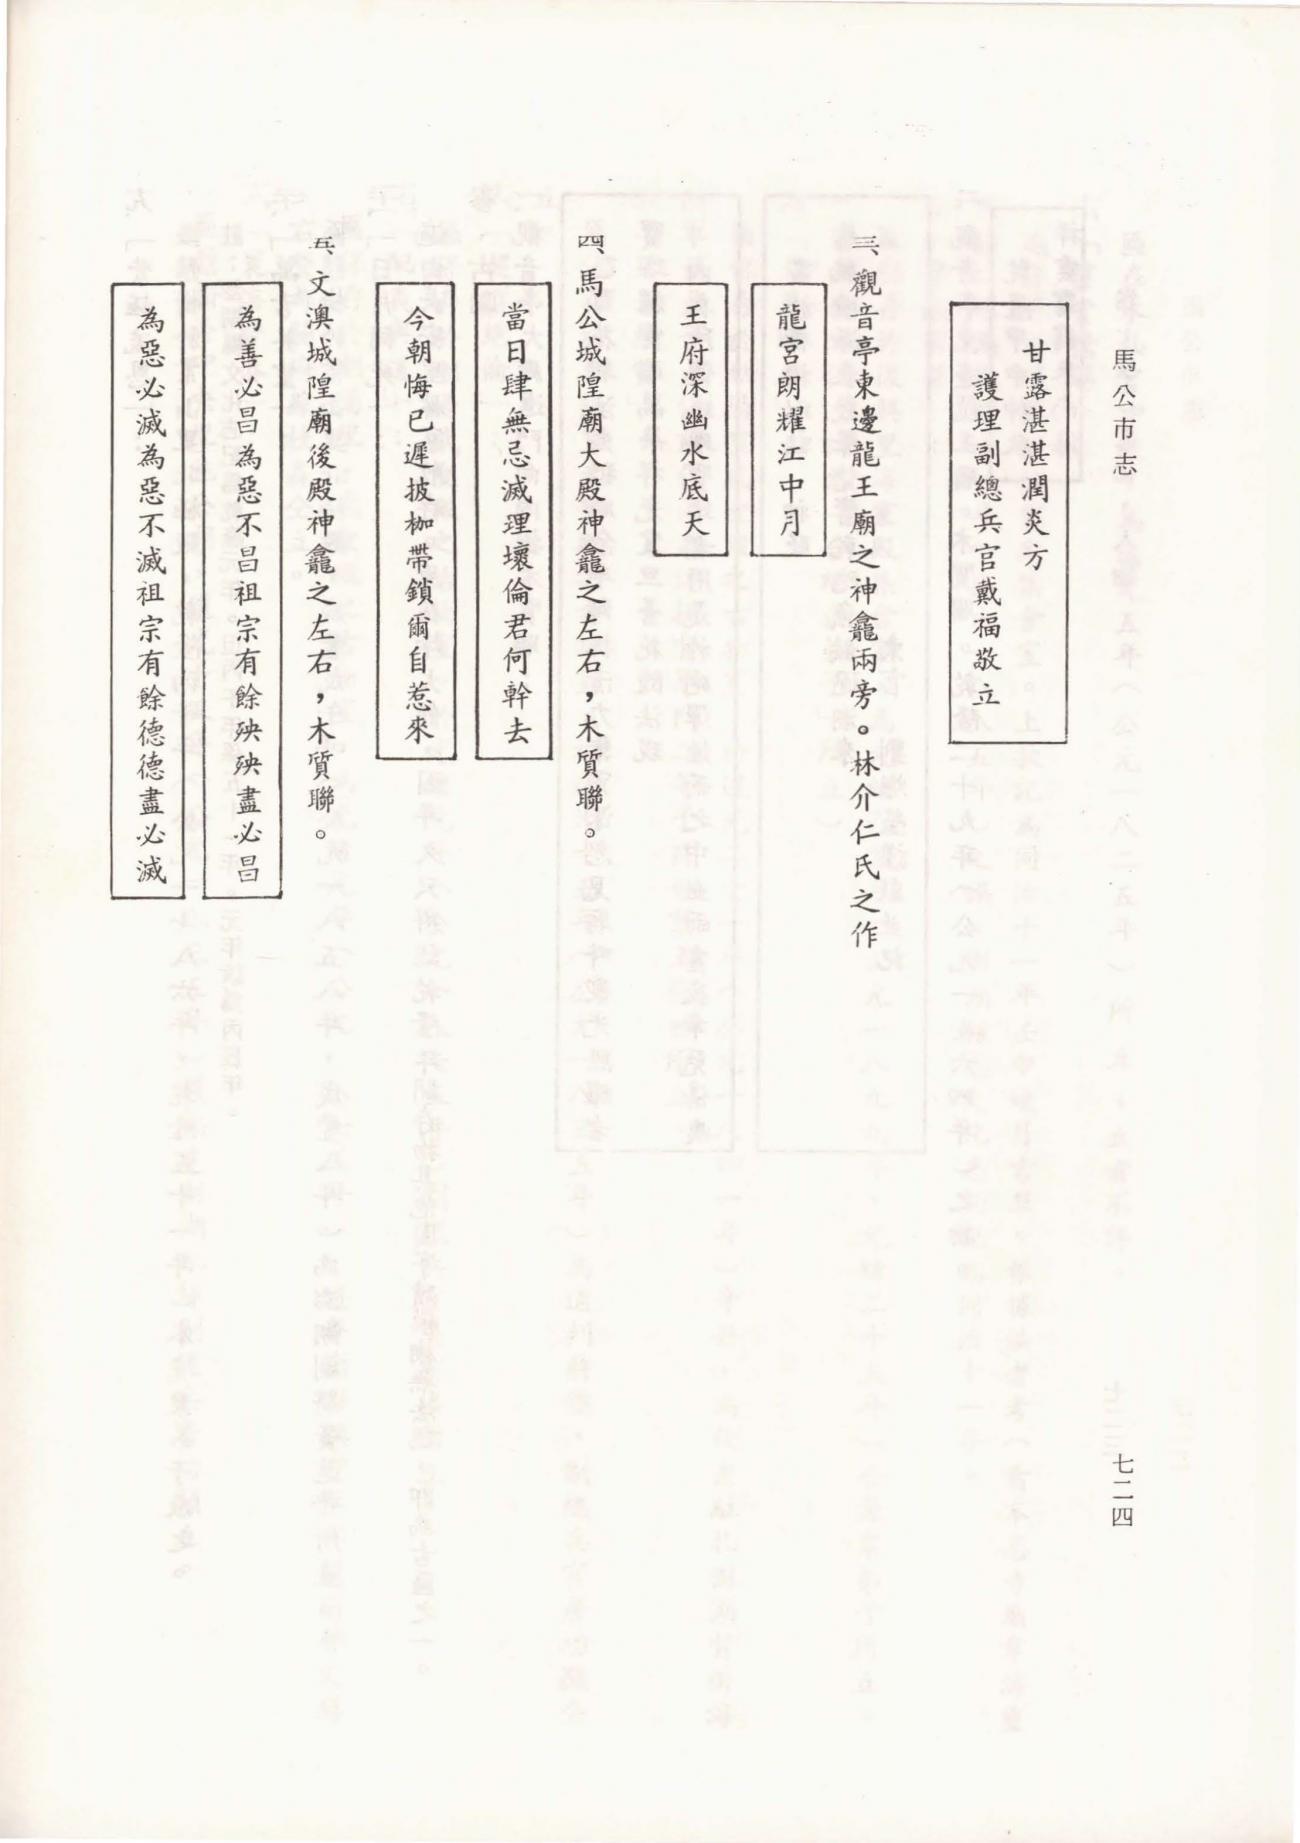 馬公市志
七二四
甘露湛湛潤炎方
護理副總兵官戴福敬立
三、觀音亭東邊龍王廟之神龕兩旁。林介仁氏之作
龍宮朗耀江中月
王府深幽水底天
四、馬公城隍廟大殿神龕之左右，木質聯。
當日肆無忌滅理壞倫君何幹去
今朝悔已遲披枷帶鎖爾自惹來
五、文澳城隍廟後殿神龕之左右，木質聯。
為善必昌為惡不昌祖宗有餘殃殃盡必昌
為惡必滅為惡不滅祖宗有餘德德盡必滅